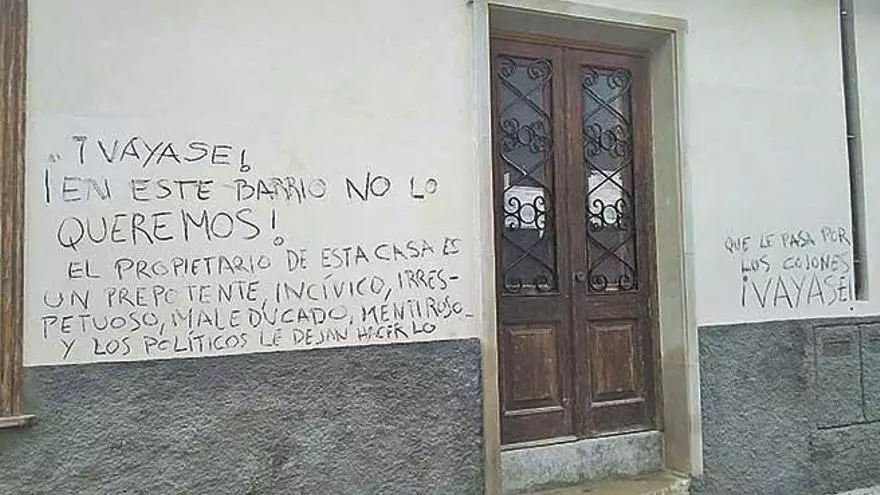 ¡VÁYASE!
¡EN ESTE BARRIO NO LO
QUEREMOS!
EL PROPIETARIO DE ESTA CASA ES
UN PREPOTENTE, INCÍVICO, IRRES-
PETUOSO, MALEDUCADO, MENTIROSO
Y LOS POLÍTICOS LE DEJAN HACERLO
QUE LE PASA POR
LOS COJONES
¡VAYASE!